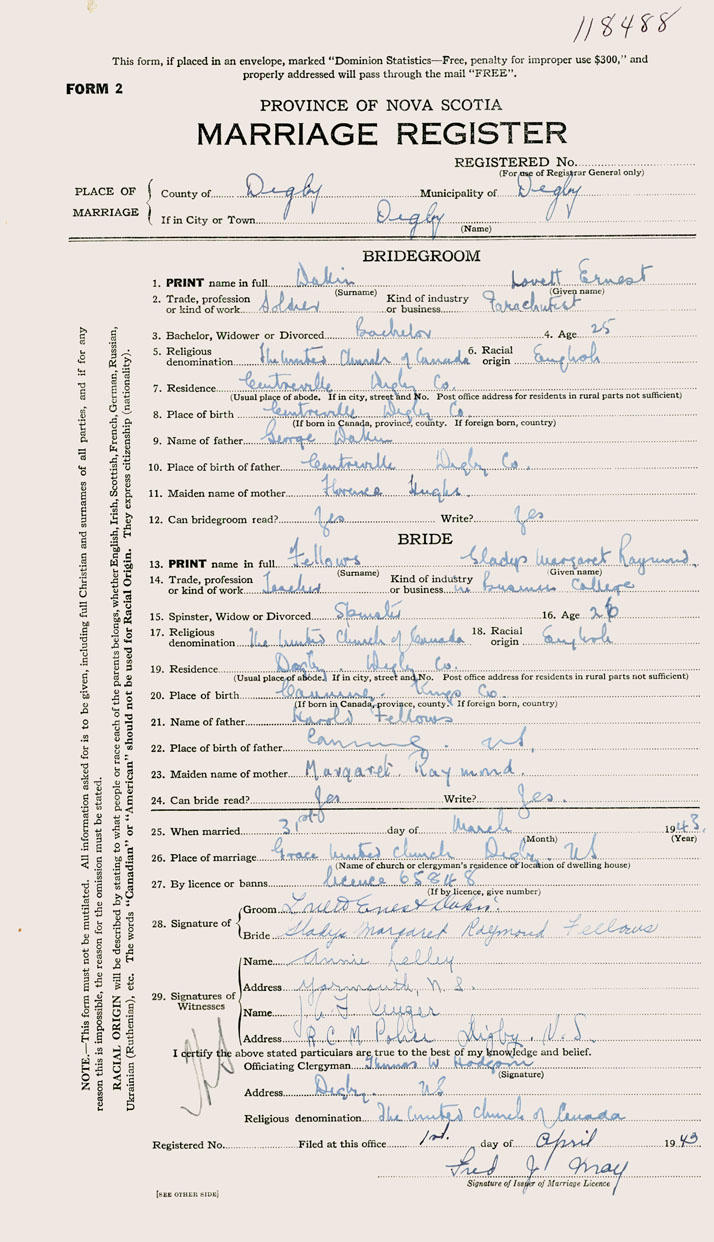 118488
This form, if placed in an envelope, marked "Dominion Statistics—Free, penalty for improper use $300," and
properly addressed will pass through the mail "FREE".
FORM 2
PROVINCE OF NOVA SCOTIA
MARRIAGE REGISTER
REGISTERED No.
(For use of Registrar General only)
PLACE OF MARRIAGE
County of Digby Municipality of Digby
If in City or Town Digby
(Name)
BRIDEGROOM
1. PRINT name in full Dakin Lovett Ernest
(Surname) (Given name)
2. Trade, profession or kind of work Soldier Kind of industry or business Parachutist
3. Bachelor, Widower or Divorced Bachelor 4. Age 25
5. Religious denomination The United Church of Canada 6. Racial origin English
7. Residence Centreville Digby Co.
(Usual place of abode. If in city, street and No. Post office address for residents in rural parts not sufficient)
8. Place of birth Centreville Digby Co.
(If born in Canada, province, county. If foreign born, country)
9. Name of father George Dakin
10. Place of birth of father Centreville Digby Co.
11. Maiden name of mother Florence Hughs.
12. Can bridegroom read? Yes Write? Yes
BRIDE
13. PRINT name in full Fellows Gladys Margaret Raymond.
(Surname) (Given name)
14. Trade, profession or kind of work Teacher Kind of industry or business in Business College
15. Spinster, Widow or Divorced Spinster 16. Age 26
17. Religious denomination The United Church of Canada 18. Racial origin English
19. Residence Digby. Digby Co.
(Usual place of abode. If in city, street and No. Post office address for residents in rural parts not sufficient)
20. Place of birth Canning. Kings Co.
(If born in Canada, province, county. If foreign born, country)
21. Name of father Harold Fellows
22. Place of birth of father Canning. NS.
23. Maiden name of mother Margaret Raymond.
24. Can bride read? Yes Write? Yes.
25. When married 31st day of March 1943.
(Month) (Year)
26. Place of marriage Grace United Church Digby. NS
(Name of church or clergyman's residence or location of dwelling house)
27. By licence or banns licence 65848
(If by licence, give number)
28. Signature of
Groom Lovett Ernest Dakin.
Bride Gladys Margaret Raymond Fellows
29. Signatures of Witnesses
Name Annie Kelley
Address Yarmouth, N.S.
Name
Address R.C.M Police Digby. N.S.
I certify the above stated particulars are true to the best of my knowledge and belief.
Officiating Clergyman Thomas W Hodgson
(Signature)
Address Digby. NS
Religious denomination The United Church of Canada
Registered No. Filed at this office 1st. day of April 1943
Fred J May
Signature of Issuer of Marriage Licence
[SEE OTHER SIDE]
NOTE.—This form must not be mutilated. All information asked for is to be given, including full Christian and surnames of all parties, and if for any
reason this is impossible, the reason for the omission must be stated.
RACIAL ORIGIN will be described by stating to what people or race each of the parents belongs, whether English, Irish, Scottish, French, German, Russian,
Ukrainian (Ruthenian), etc. The words "Canadian" or "American" should not be used for Racial Origin. They express citizenship (nationality).